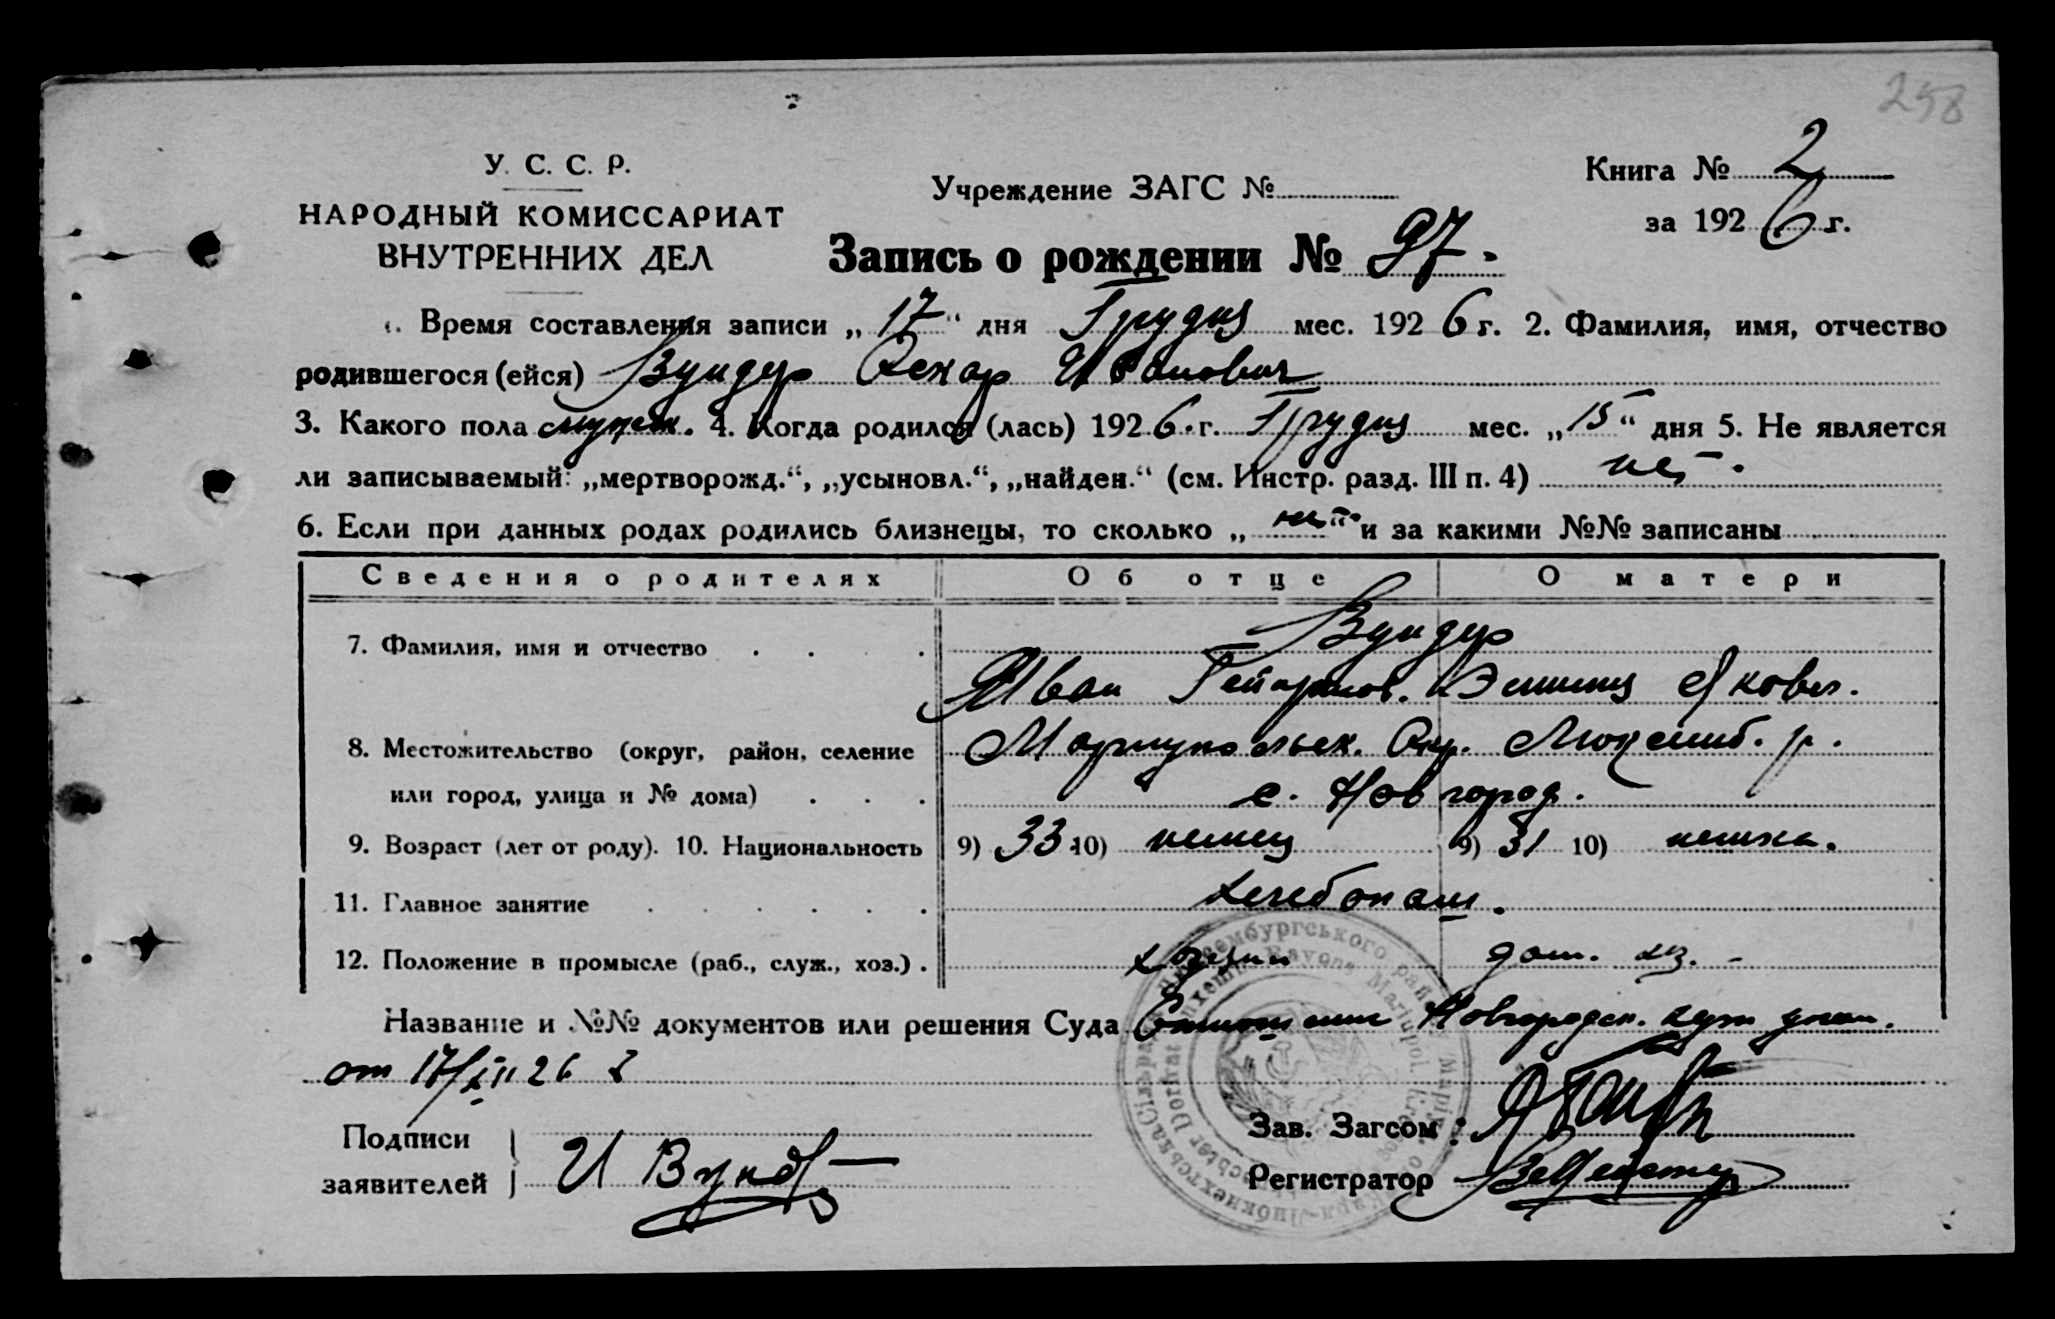 258
У. С. С. Р.
НАРОДНЫЙ КОМИССАРИАТ
ВНУТРЕННИХ ДЕЛ
Учреждение ЗАГС №
Книга № 2
за 1926 г.
Запись о рождении № 97.
1. Время составления записи „17“ дня Грудня мес. 1926 г. 2. Фамилия, имя, отчество
родившегося (ейся) Вундер Оскар Иванович
3. Какого пола мужск. 4. Когда родился (лась) 1926 г. Грудня мес. „15“ дня 5. Не является
ли записываемый: „мертворожд.“, „усыновл.“, „найден.“ (см. Инстр. разд. III п. 4) нет.
6. Если при данных родах родились близнецы, то сколько „нет“ и за какими №№ записаны
Сведения о родителях Об отце О матери
7. Фамилия, имя и отчество Вундер
Иван Эмилия Яковл.
8. Местожительство (округ, район, селение Мариупольск. Окр. Люксемб. р.
или город, улица и № дома) с. Новгород.
9. Возраст (лет от роду). 10. Национальность 9) 33 10) немец 9) 31 10) немка.
11. Главное занятие хлебопаш.
12. Положение в промысле (раб., служ., хоз.) хозяин дом. хоз.
Название и №№ документов или решения Суда Новгородск.
от 17/XII 26 г
Подписи
заявителей И Вундер
Зав. Загсом:
Регистратор